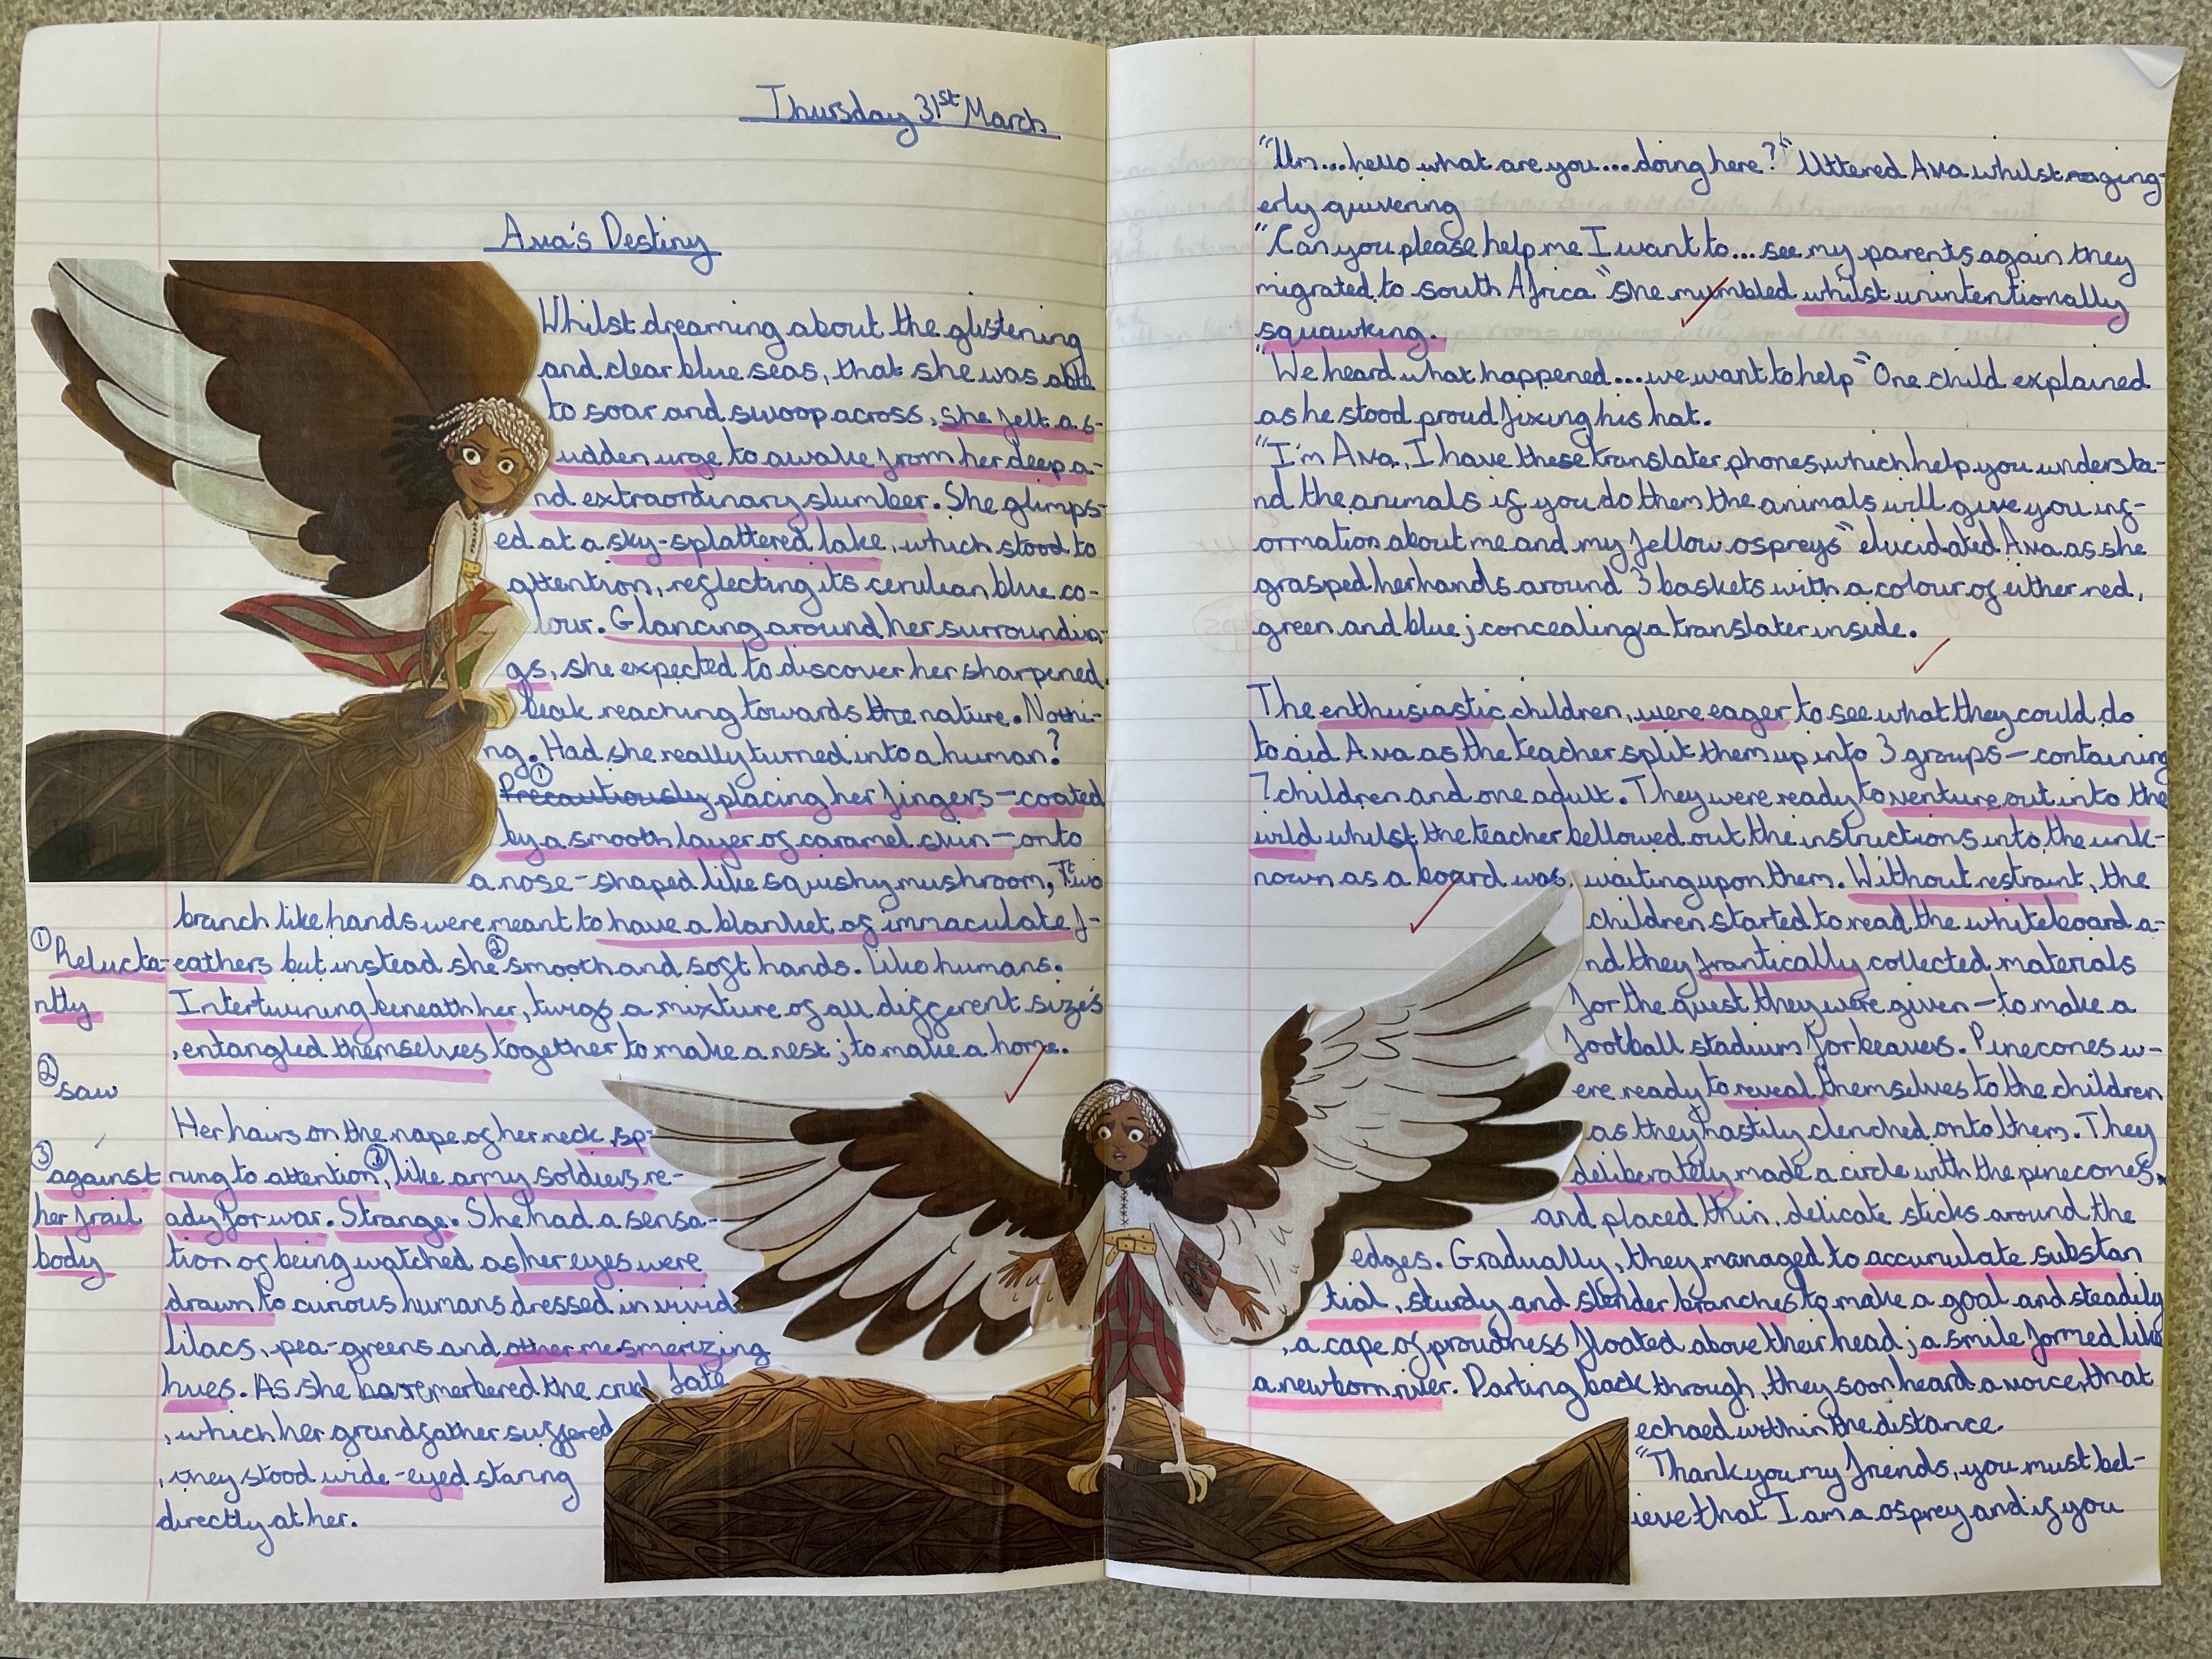 Thursday 31st March
Ava's Destiny
Whilst dreaming about the glistening
and clear blue seas, that she was able
to soar and swoop across, she felt a s-
udden urge to awake from her deep a-
nd extraordinary slumber. She glimps-
ed at a sky-splattered lake, which stood to
attention, reflecting its cerulean blue co-
lour. Glancing around her surroundin-
gs, she expected to discover her sharpened
beak reaching towards the nature. Nothi-
ng. Had she really turned into a human?
① Precautiously placing her fingers — coated
by a smooth layer of caramel skin — onto
a nose - shaped like squishy mushroom, It two
branch like hands were meant to have a blanket of immaculate f-
① Relucta-
ntly
eathers but instead she ② smooth and soft hands. Like humans.
Intertwining beneath her, twigs a mixture of all different size's
, entangled themselves together to make a nest ; to make a home.
② saw
Her hairs on the nape of her neck, sp-
③ against
her frail
body
rung to attention ③, like army soldiers re-
ady for war. Strange. She had a sensa-
tion of being watched as her eyes were
drawn to curious humans dressed in vivid
lilacs, pea-greens and other mesmerizing
hues. As she remembered the cruel fate
, which her grandfather suffered
, they stood wide-eyed staring
directly at her.
"Um...hello what are you... doing here?" Uttered Ava whilst ging-
erly quivering
"Can you please help me I want to... see my parents again they
migrated to south Africa" she mumbled whilst unintentionally
squawking.
"We heard what happened... we want to help" One child explained
as he stood proud fixing his hat.
"I'm Ava, I have these translater phones, which help you understa-
nd the animals if you do them the animals will give you inf-
ormation about me and my fellow ospreys" elucidated Ava as she
grasped her hands around 3 baskets with a colour of either red,
green and blue ; concealing a translater inside.
The enthusiastic children, were eager to see what they could do
to aid Ava as the teacher split them up into 3 groups — containing
7 children and one adult. They were ready to venture out into the
wild whilst the teacher bellowed out the instructions into the unk-
nown as a board was, waiting upon them. Without restraint, the
children started to read the whiteboard a-
nd they frantically collected materials
for the quest they were given — to make a
football stadium for beavers. Pinecones w-
ere ready to reveal themselves to the children
as they hastily clenched onto them. They
deliberately made a circle with the pinecones,
and placed thin, delicate sticks around the
edges. Gradually, they managed to accumulate substan
tial, sturdy and slender branches to make a goal and steadily
, a cape of proudness floated above their head ; a smile formed like
a newborn river. Darting back through, they soon heard a voice, that
echoed within the distance.
"Thank you my friends, you must bel-
ieve that I am a osprey and if you